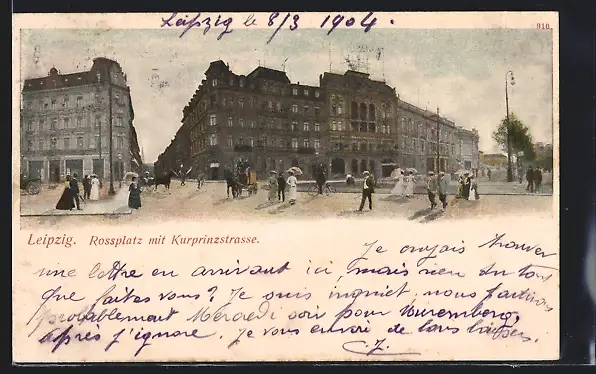 Leipzig le 8/3 1904.
910.
Leipzig. Rossplatz mit Kurprinzstrasse.
Je croyais trouver
une lettre en arrivant ici, mais rien du tout
que faites vous? Je suis inquiet, nous partirons
probablement Mercredi soir pour Nuremberg,
après j'ignore. Je vous envoi de bons baisers.
C. J.